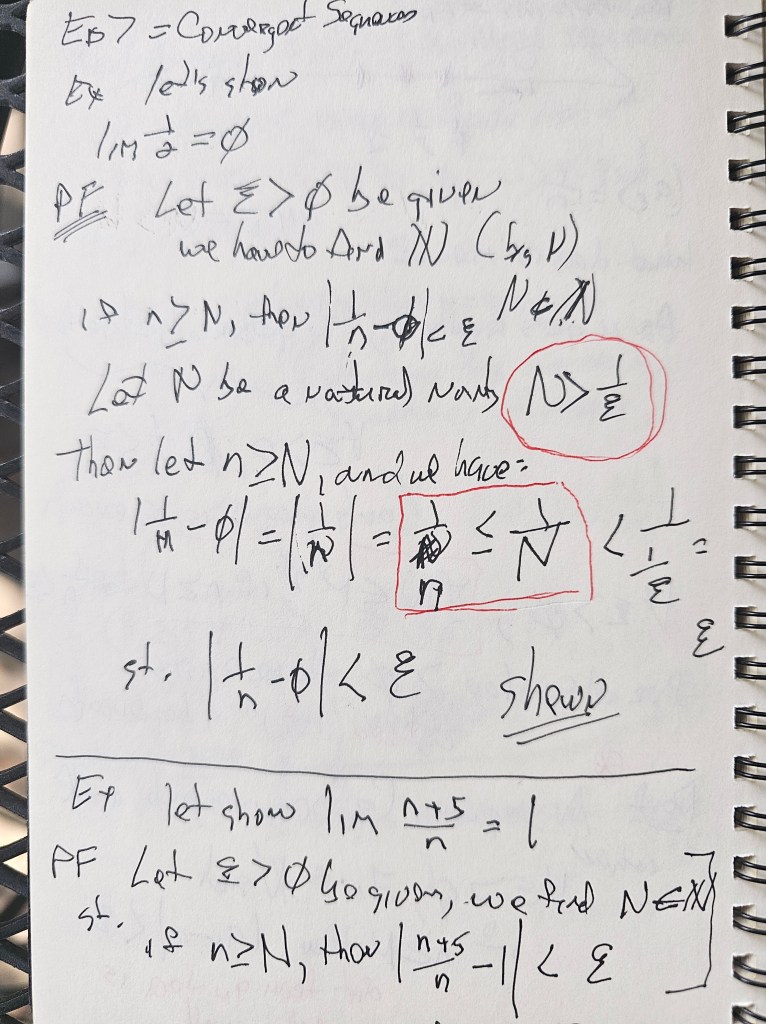 Ep 7 = Convergent Sequences
Ex let's show
lim 1/2 = ∅
PF Let ε > ∅ be given
we have to find N (big N)
if n ≥ N, then |1/n - ∅| < ε N ∈ ℕ
Let N be a natural number N > 1/ε
then let n ≥ N, and we have:
|1/n - ∅| = |1/n| = 1/n ≤ 1/N < 1/(1/ε) = ε
st. |1/n - ∅| < ε shown
Ex let show lim (n+5)/n = 1
PF Let ε > ∅ be given, we find N ∈ ℕ
st. if n ≥ N, then |(n+5)/n - 1| < ε